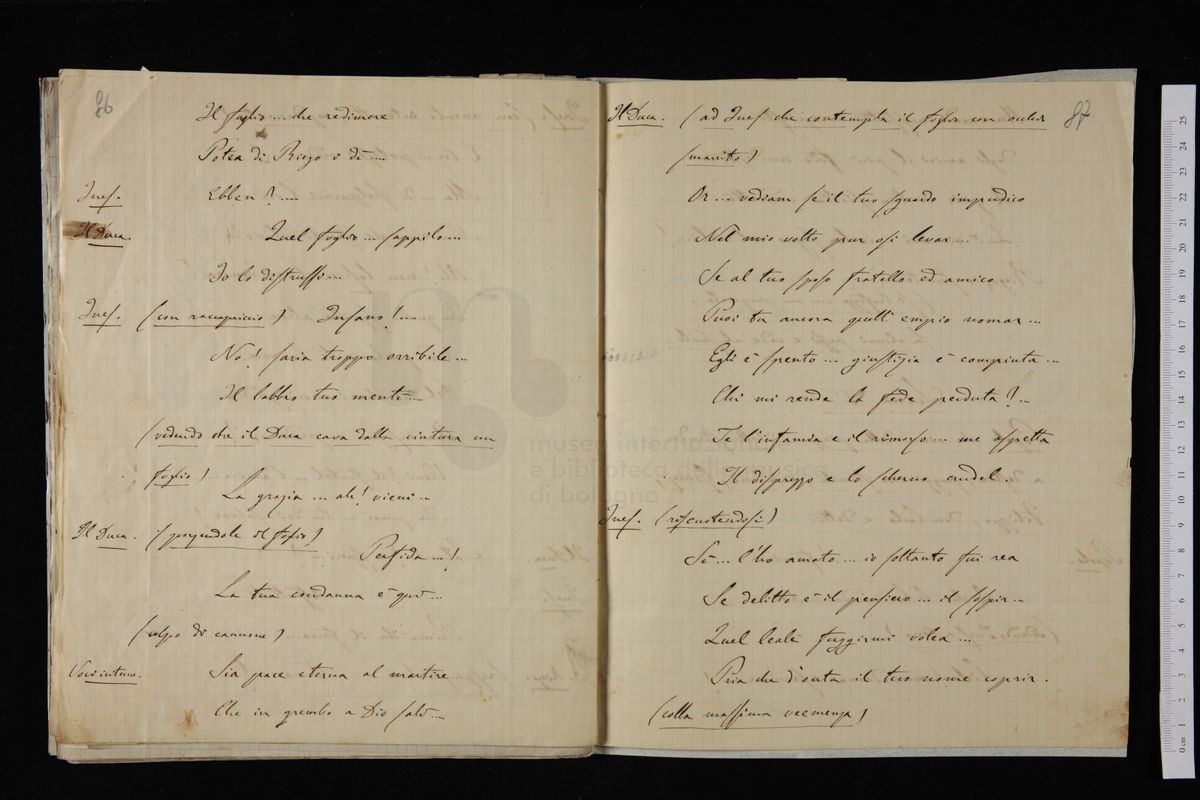 86
Il foglio... che redimere
Potea di Riego i dì....
Ines.
Ebben?....
Il Duca.
Quel foglio... sappilo...
Io lo distrussi...
Ines. (con raccapriccio) Insano!...
No! saria troppo orribile...
Il labbro tuo mente...
(vedendo che il Duca cava dalla cintura un
foglio)
La grazia... ah! vieni...
Il Duca. (porgendole il foglio)
Perfida...!
La tua condanna è qui...
(colpo di cannone)
Voci interne. Sia pace eterna al martire
Che in grembo a Dio salì...
87
Il Duca. (ad Ines che contempla il foglio con occhio
smarrito)
Or... vediam se il tuo sguardo impudico
Nel mio volto pur osi levar...
Se al tuo sposo fratello ed amico
Puoi tu ancora quell'empio nomar...
Egli è spento... giustizia è compiuta...
Chi mi rende la fede perduta?...
Te l'infamia e il rimorso... me aspetta
Il disprezzo e lo scherno crudel.
Ines. (riscuotendosi)
Sì... l'ho amato... io soltanto fui rea
Se delitto è il pensiero... il sospir...
Quel leale fuggirmi volea...
Pria che d'onta il tuo nome coprir.
(colla massima veemenza)
museo internazionale
e biblioteca della musica
di bologna